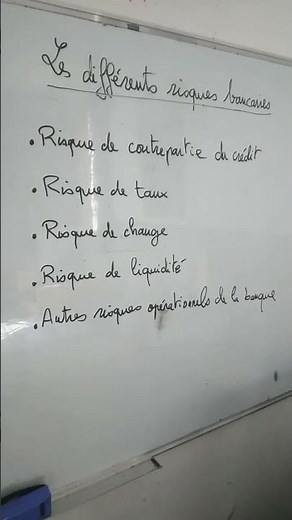 Les différents risques bancaires
• Risque de contrepartie du crédit
• Risque de taux
• Risque de change
• Risque de liquidité
• Autres risques opérationnels de la banque